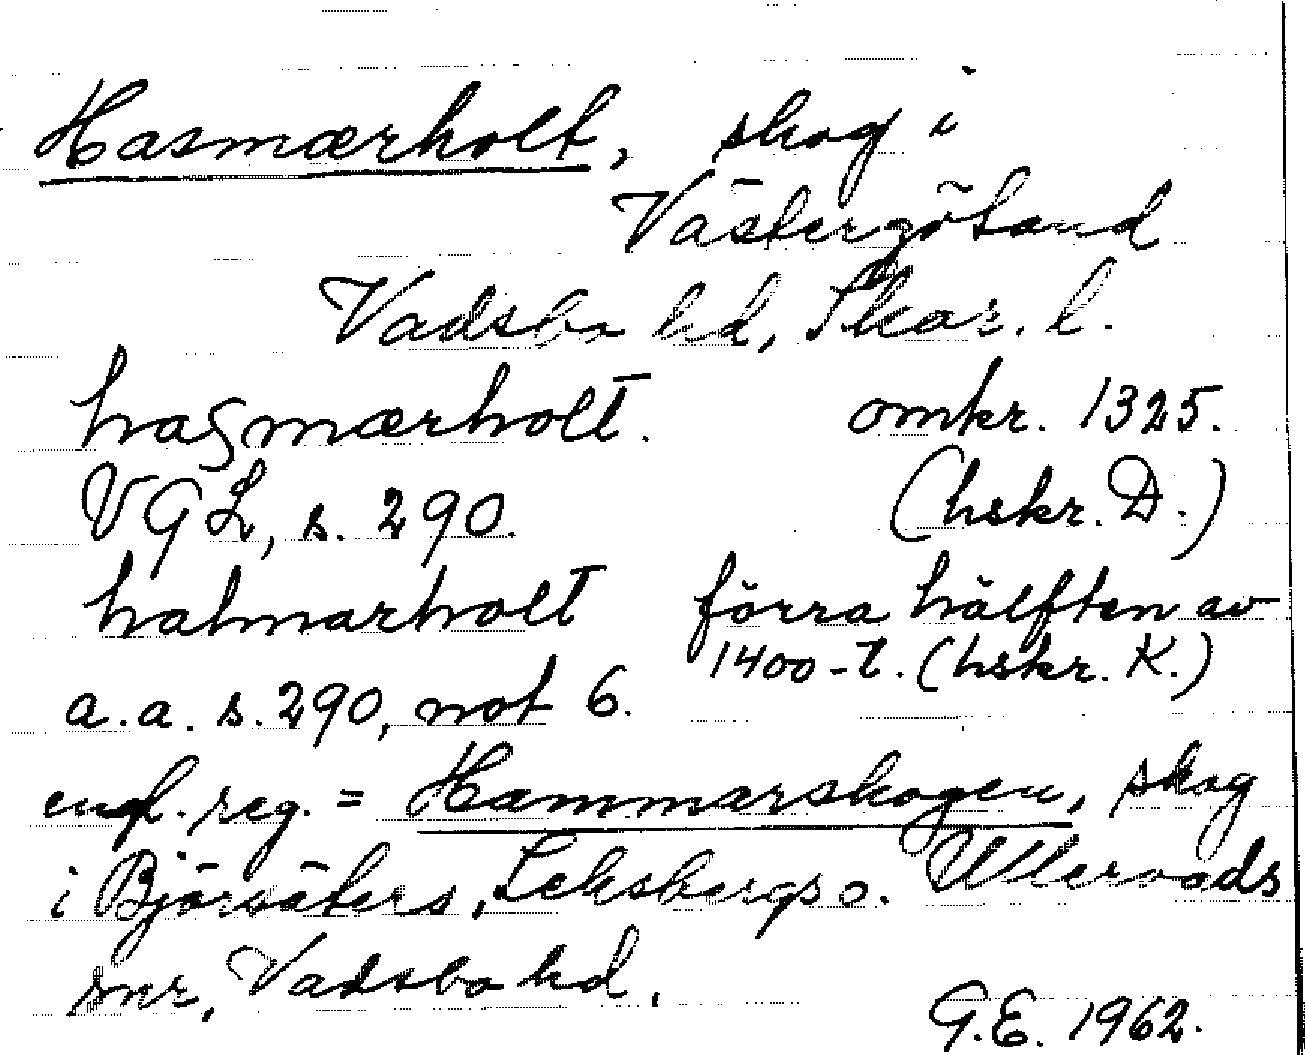 Hasmærholt, skog i
Västergötland
Vadsbo hd, Skar. l.
hasmærholt. omkr. 1325.
VGL, s. 290. (hskr. D.)
halmarholt förra hälften av
1400-t. (hskr. K.)
a.a. s. 290, not 6.
enl. reg. = Hammarskogen, skog
i Björsäters, Leksbergs o. Ullervads
snr, Vadsbo hd.
G.E. 1962.